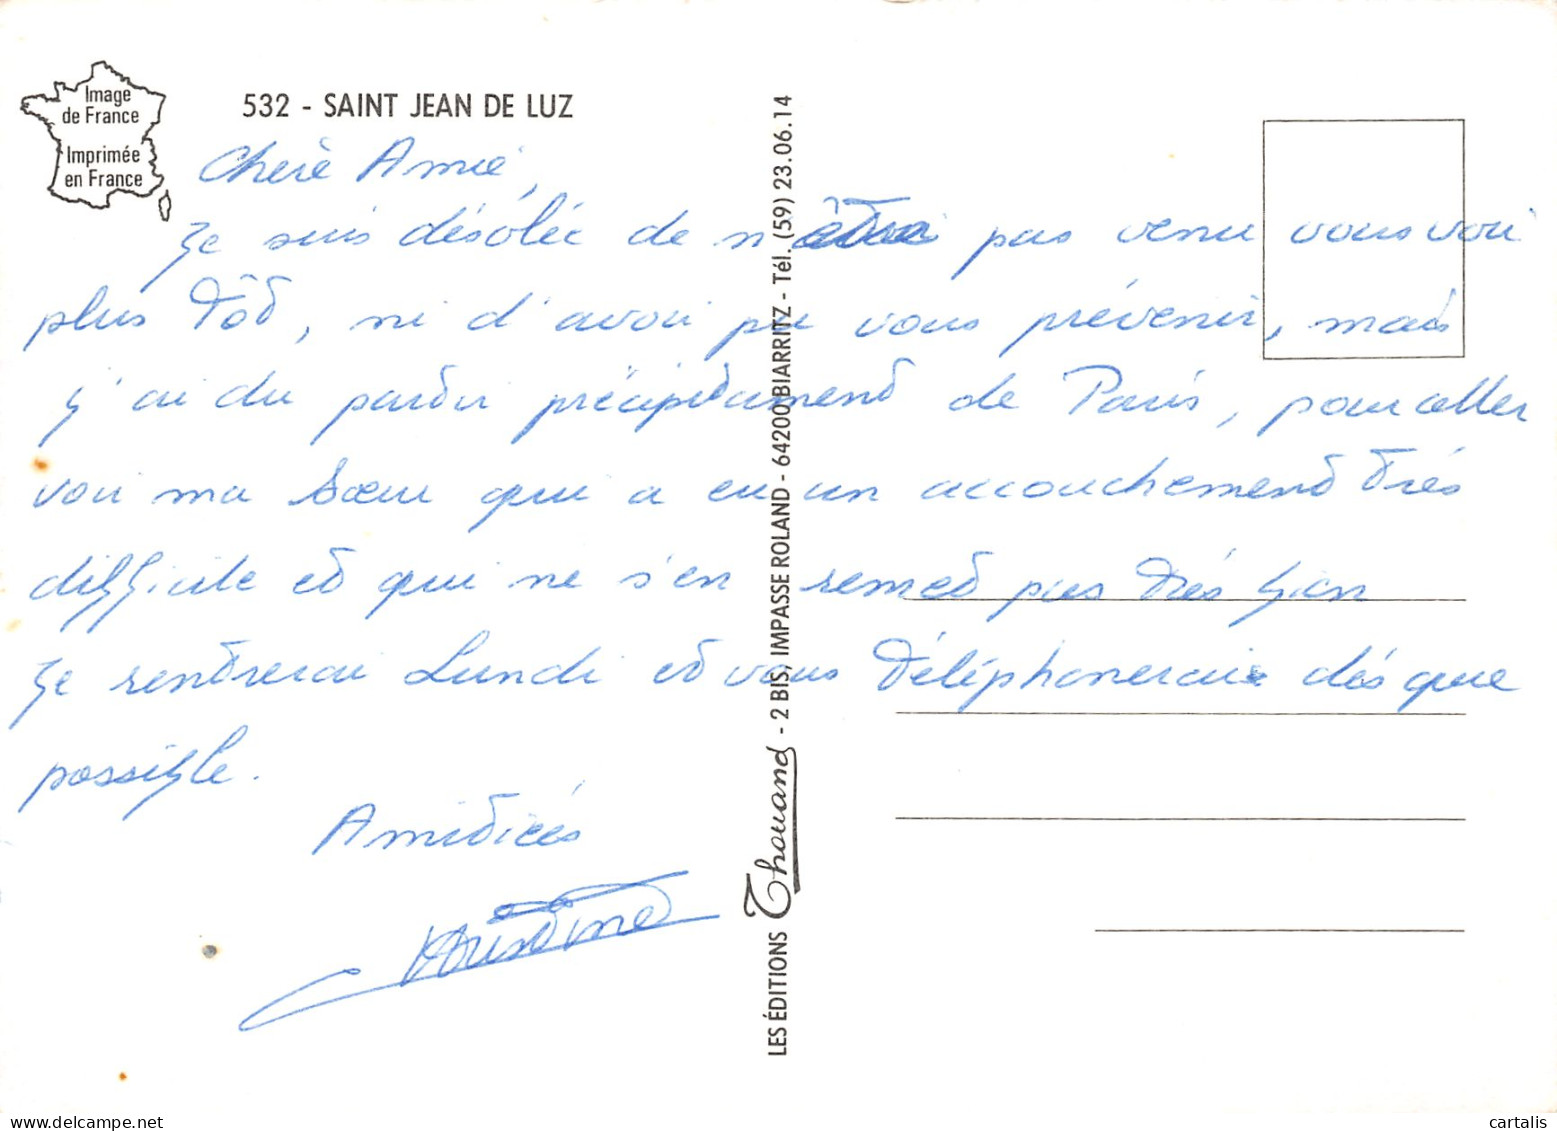 Image
de France
Imprimée
en France
532 - SAINT JEAN DE LUZ
Chère Amie,
Je suis désolée de n'être pas venu vous voir
plus tôt, ni d'avoir pu vous prévenir, mais
j'ai du partir précipitament de Paris, pour aller
voir ma sœur qui a eu un accouchement très
difficile et qui ne s'en remet pas très bien
Je rentrerai Lundi et vous téléphonerai dès que
possible.
Amitiés
LES ÉDITIONS Thouand - 2 BIS, IMPASSE ROLAND - 64200 BIARRITZ - Tél. (59) 23.06.14
cartalis